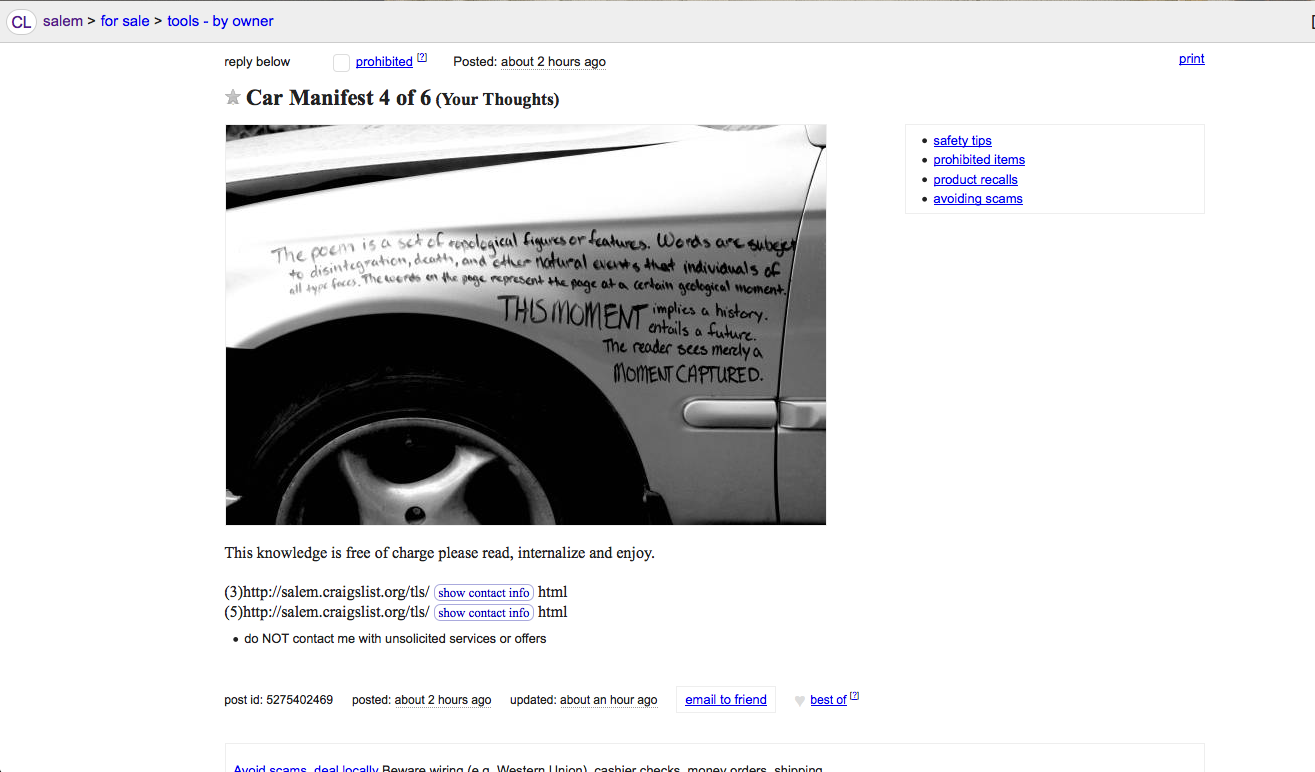 CL salem > for sale > tools - by owner
reply below prohibited [?] Posted: about 2 hours ago print
Car Manifest 4 of 6 (Your Thoughts)
safety tips
prohibited items
product recalls
avoiding scams
The poem is a set of topological figures or features. Words are subject
to disintegration, death, and other natural events that individuals of
all type faces. The words on the page represent the page at a certain geological moment.
THIS MOMENT implies a history.
entails a future.
The reader sees merely a
MOMENT CAPTURED.
This knowledge is free of charge please read, internalize and enjoy.
(3)http://salem.craigslist.org/tls/ show contact info html
(5)http://salem.craigslist.org/tls/ show contact info html
do NOT contact me with unsolicited services or offers
post id: 5275402469 posted: about 2 hours ago updated: about an hour ago email to friend best of [?]
Avoid scams, deal locally Beware wiring (e.g. Western Union), cashier checks, money orders, shipping.